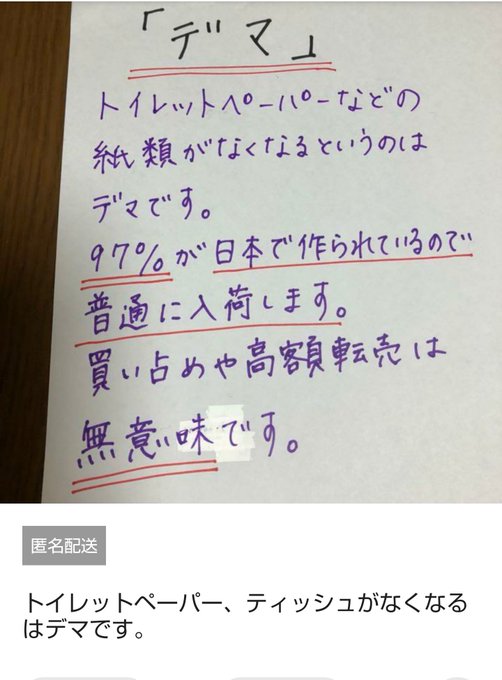 「デマ」
トイレットペーパーなどの
紙類がなくなるというのは
デマです。
97%が日本で作られているので
普通に入荷します。
買い占めや高額転売は
無意味です。
匿名配送
トイレットペーパー、ティッシュがなくなる
はデマです。